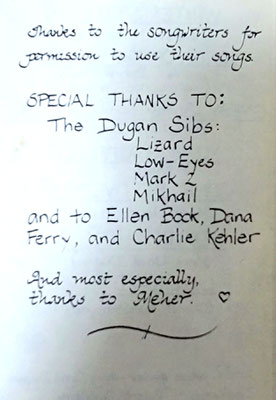 thanks to the songwriters for
permission to use their songs.
SPECIAL THANKS TO:
The Dugan Sibs:
Lizard
Low-Eyes
Mark 2
Mikhail
and to Ellen Book, Dana
Ferry, and Charlie Kehler
And most especially,
thanks to Meher. ♡